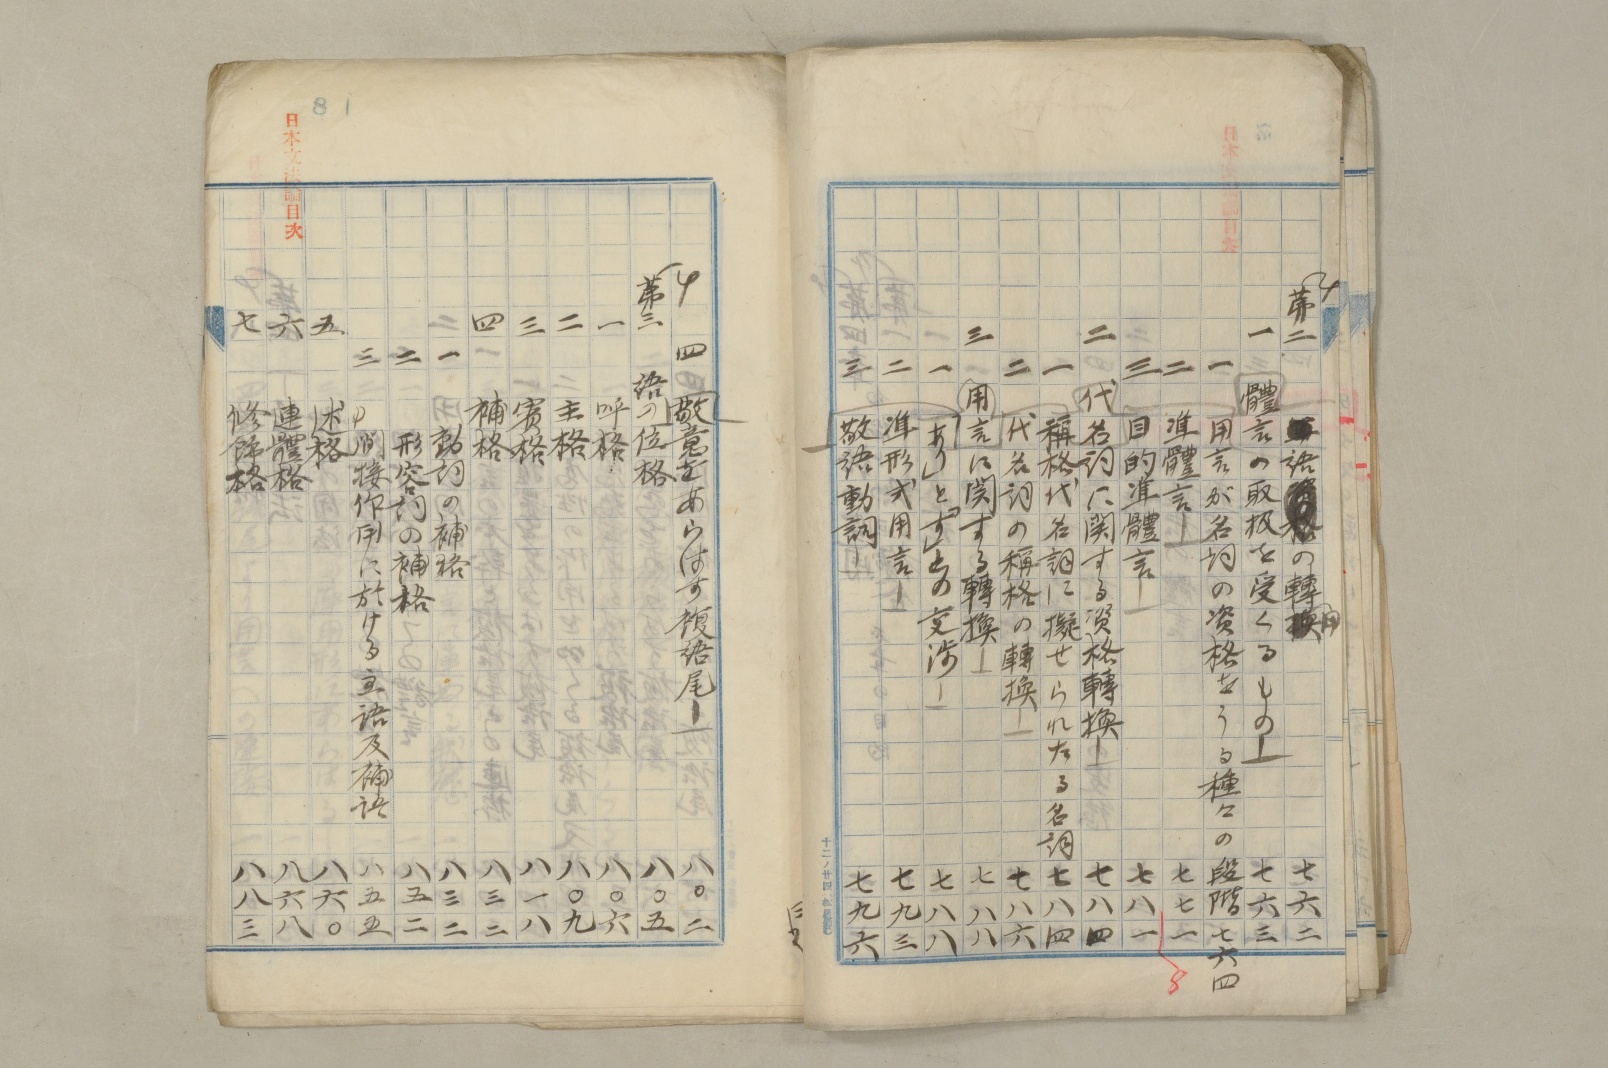 第二 語の轉換 七六二
一 體言の取扱を受くるもの 七六三
一 用言が名詞の資格をうる種々の段階 七六四
二 準體言 七七一
三 目的準體言 七八一
二 代名詞に関する資格轉換 七八四
一 稱格代名詞に擬せられたる名詞 七八四
二 代名詞の稱格の轉換 七八六
三 用言に関する轉換 七八八
一 「あり」と「す」との交渉 七八八
二 準形式用言 七九三
三 敬語動詞 七九六
四 敬意をあらはす複語尾 八〇二
第三 語の位格 八〇五
一 呼格 八〇六
二 主格 八〇九
三 賓格 八一八
四 補格 八三二
一 動詞の補格 八三二
二 形容詞の補格 八五二
三 間接作用に於ける主語及補語 八五五
五 述格 八六〇
六 連體格 八六八
七 修飾格 八八三
日本文法論目次
81